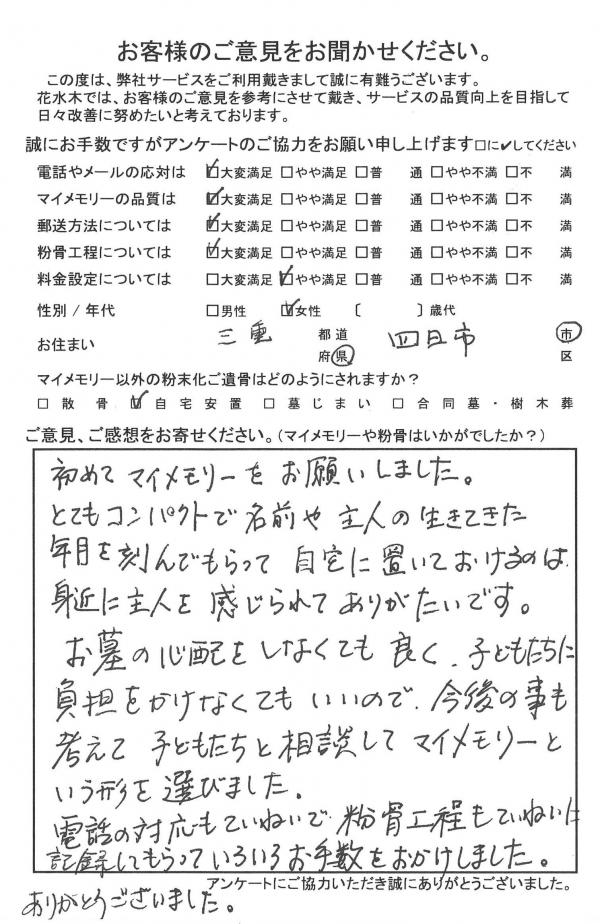 お客様のご意見をお聞かせください。
この度は、弊社サービスをご利用戴きまして誠に有難うございます。
花水木では、お客様のご意見を参考にさせて戴き、サービスの品質向上を目指して
日々改善に努めたいと考えております。
誠にお手数ですがアンケートのご協力をお願い申し上げます□に✔してください
電話やメールの応対は ☑大変満足 □やや満足 □普 通 □やや不満 □不 満
マイメモリーの品質は ☑大変満足 □やや満足 □普 通 □やや不満 □不 満
郵送方法については ☑大変満足 □やや満足 □普 通 □やや不満 □不 満
粉骨工程については ☑大変満足 □やや満足 □普 通 □やや不満 □不 満
料金設定については □大変満足 ☑やや満足 □普 通 □やや不満 □不 満
性別 / 年代 □男性 ☑女性 〔 〕歳代
お住まい 三重 都道府県 四日市 市区
マイメモリー以外の粉末化ご遺骨はどのようにされますか？
□ 散 骨 ☑ 自宅安置 □ 墓じまい □ 合同墓・樹木葬
ご意見、ご感想をお寄せください。(マイメモリーや粉骨はいかがでしたか？)
初めて マイメモリーを お願いしました。
とてもコンパクトで 名前や 主人の生きてきた
年月を刻んでもらって 自宅に置いておけるのは
身近に主人を 感じられて ありがたいです。
お墓の心配をしなくても 良く、子どもたちに
負担をかけなくてもいいので、今後の事も
考えて 子どもたちと相談して マイメモリーと
いう形を選びました。
電話の対応もていねいで 粉骨工程もていねいに
記録してもらっていろいろお手数をおかけしました。
アンケートにご協力いただき誠にありがとうございました。
ありがとうございました。